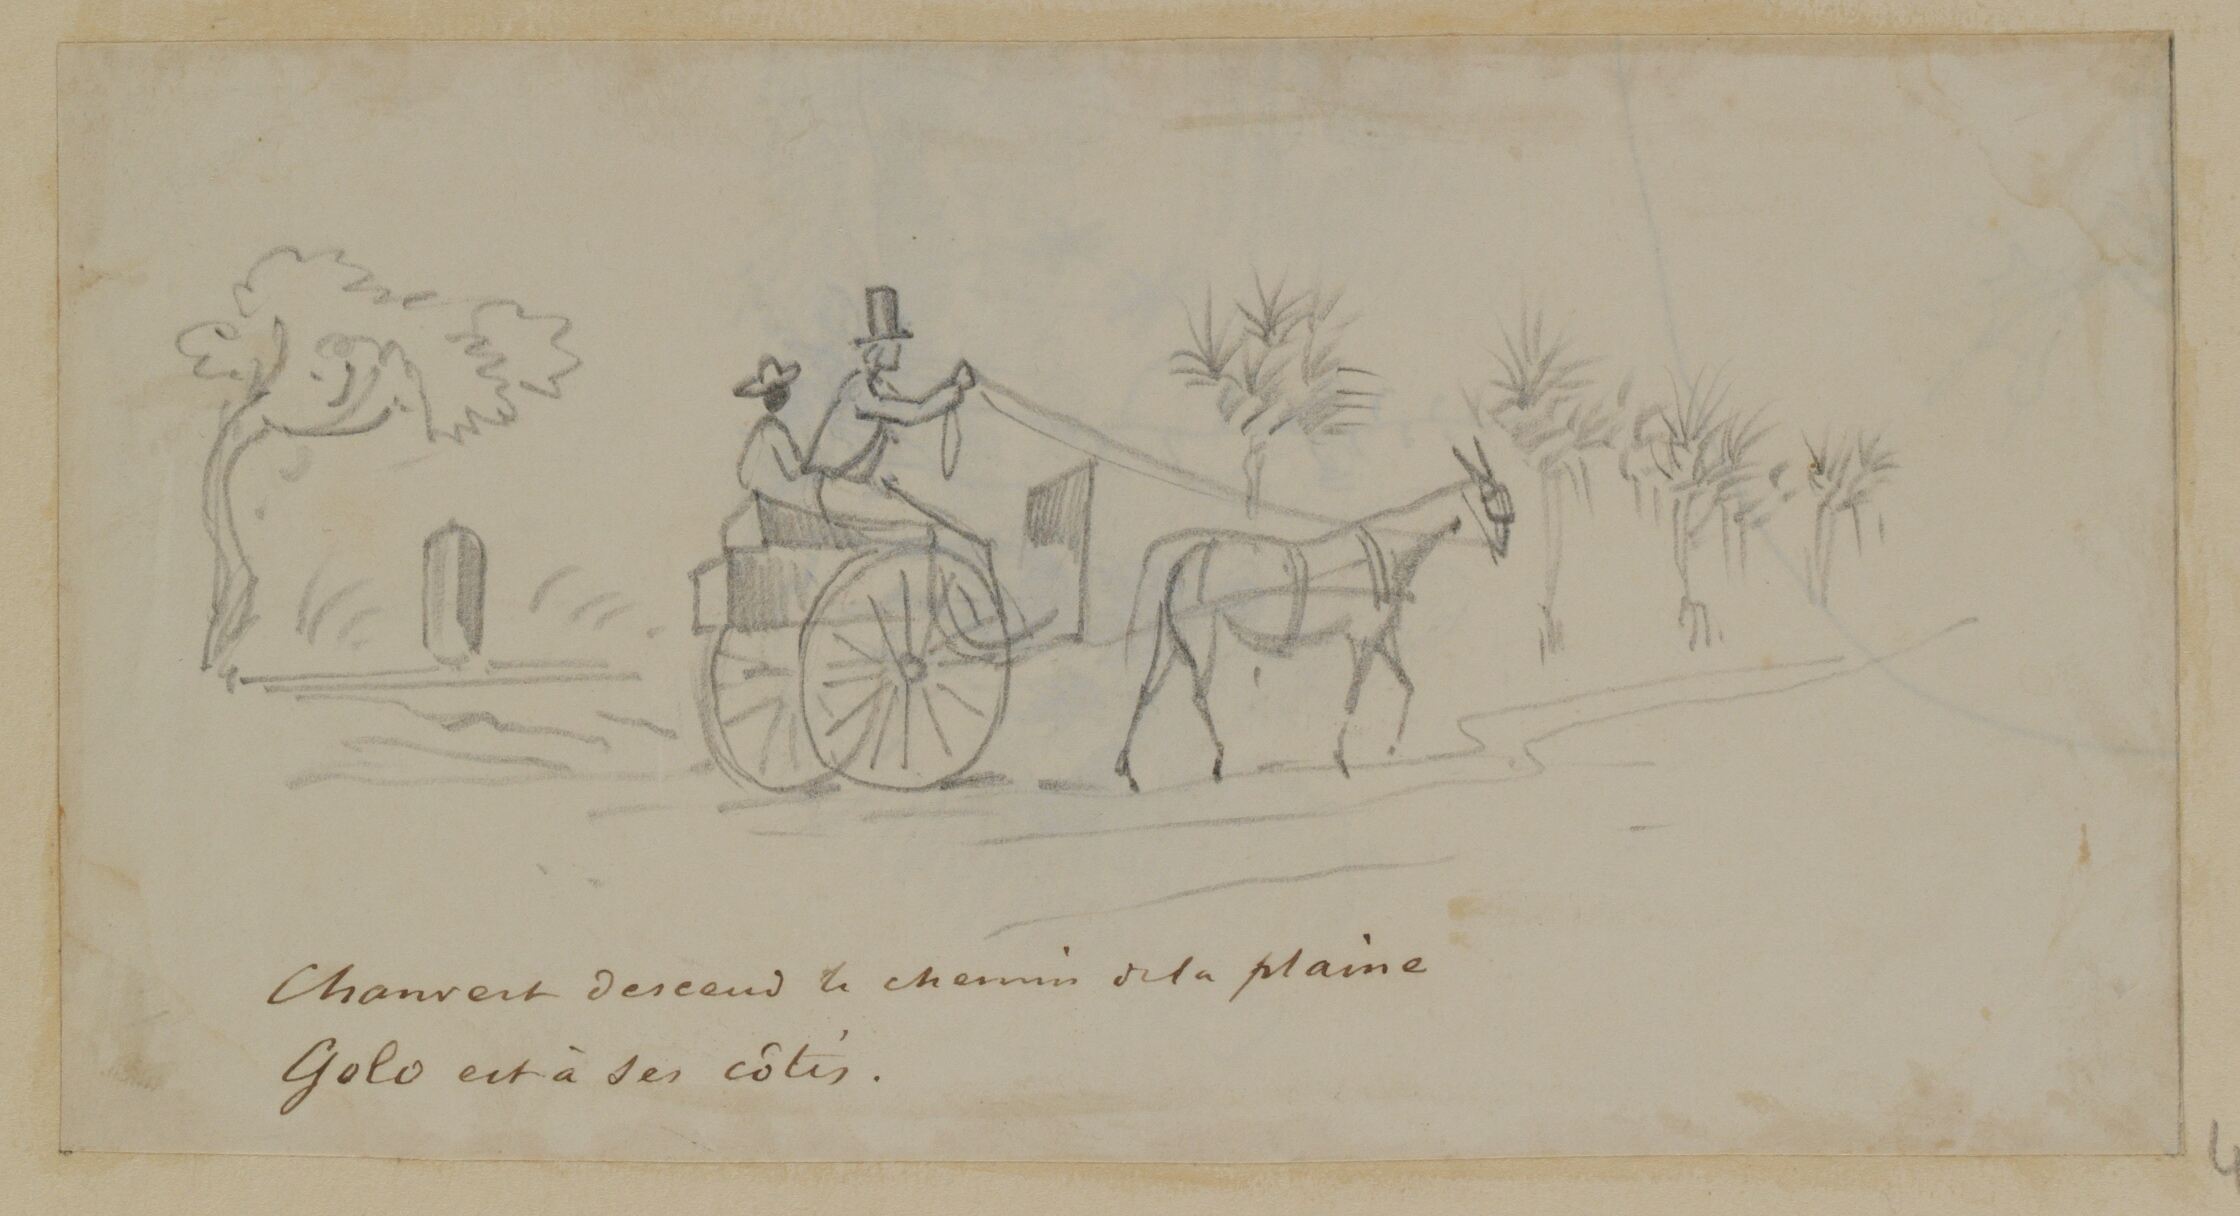 Chanvert descend le chemin de la plaine
Golo est à ses côtés.
4